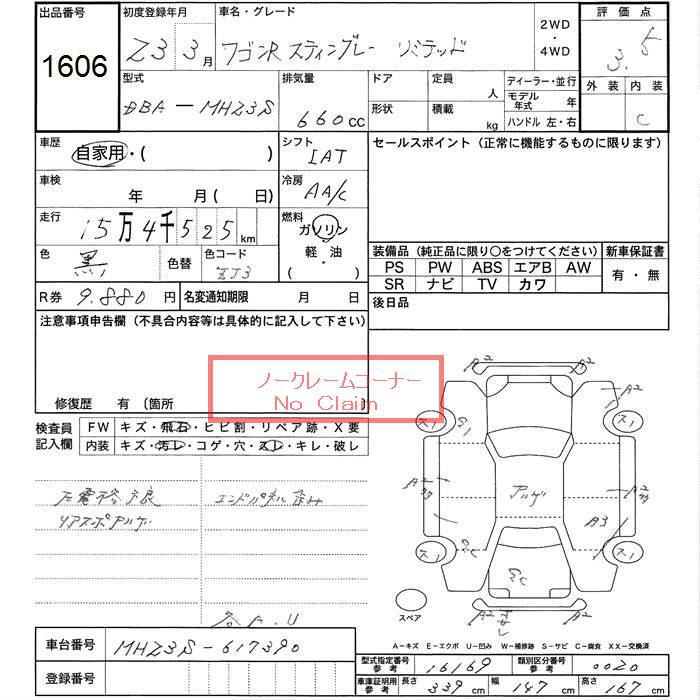 出品番号
1606
初度登録年月
23 3月
車名・グレード
ワゴンR スティングレー リミテッド
2WD・4WD
評価点
3.5
型式
DBA-MH23S
排気量
660cc
ドア
形状
定員 人
積載 kg
ディーラー・並行
モデル年式 年
ハンドル 左・右
外装 内装
C
車歴
自家用・( )
シフト
IAT
セールスポイント (正常に機能するものに限ります)
車検
年 月 ( 日)
冷房
AA/C
走行
15万4千525km
燃料
ガソリン
軽・油
・( )
色
黒
色替
色コード
ZJ3
装備品 (純正品に限り○をつけてください)
新車保証書
PS PW ABS エアB AW
SR ナビ TV カワ
有・無
R券 9.880円
名変通知期限 月 日
後日品
注意事項申告欄 (不具合内容等は具体的に記入して下さい)
ノークレームコーナー
No Claim
修復歴 有 (箇所
検査員記入欄
FW キズ・飛石・ヒビ割・リペア跡・X要
内装 キズ・汚レ・コゲ・穴・スレ・キレ・破レ
エンドパネル歪み
リアスポアルゲ
A2
A2
A2
ス1
ス1
アルゲ
A3
ス1
ス1
A2
スペア
A-キズ E-エクボ U-凹み W-補修跡 S-サビ C-腐食 XX-交換済
車台番号
MH23S-617390
登録番号
型式指定番号参考 16169
類別区分番号参考 0020
車庫証明用参考 長さ 339cm 幅 147cm 高さ 167cm